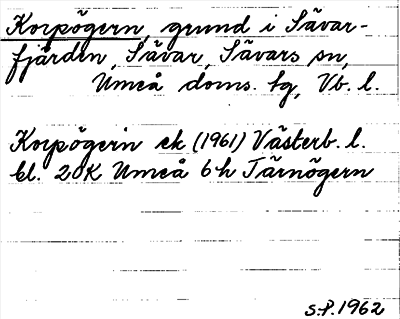 Korpögern, grund i Sävar-
fjärden, Sävar, Sävars sn,
Umeå doms. tg, Vb. l.
Korpögern ek (1961) Västerb. l.
bl. 20K Umeå 6h Tärnögern
S.P. 1962